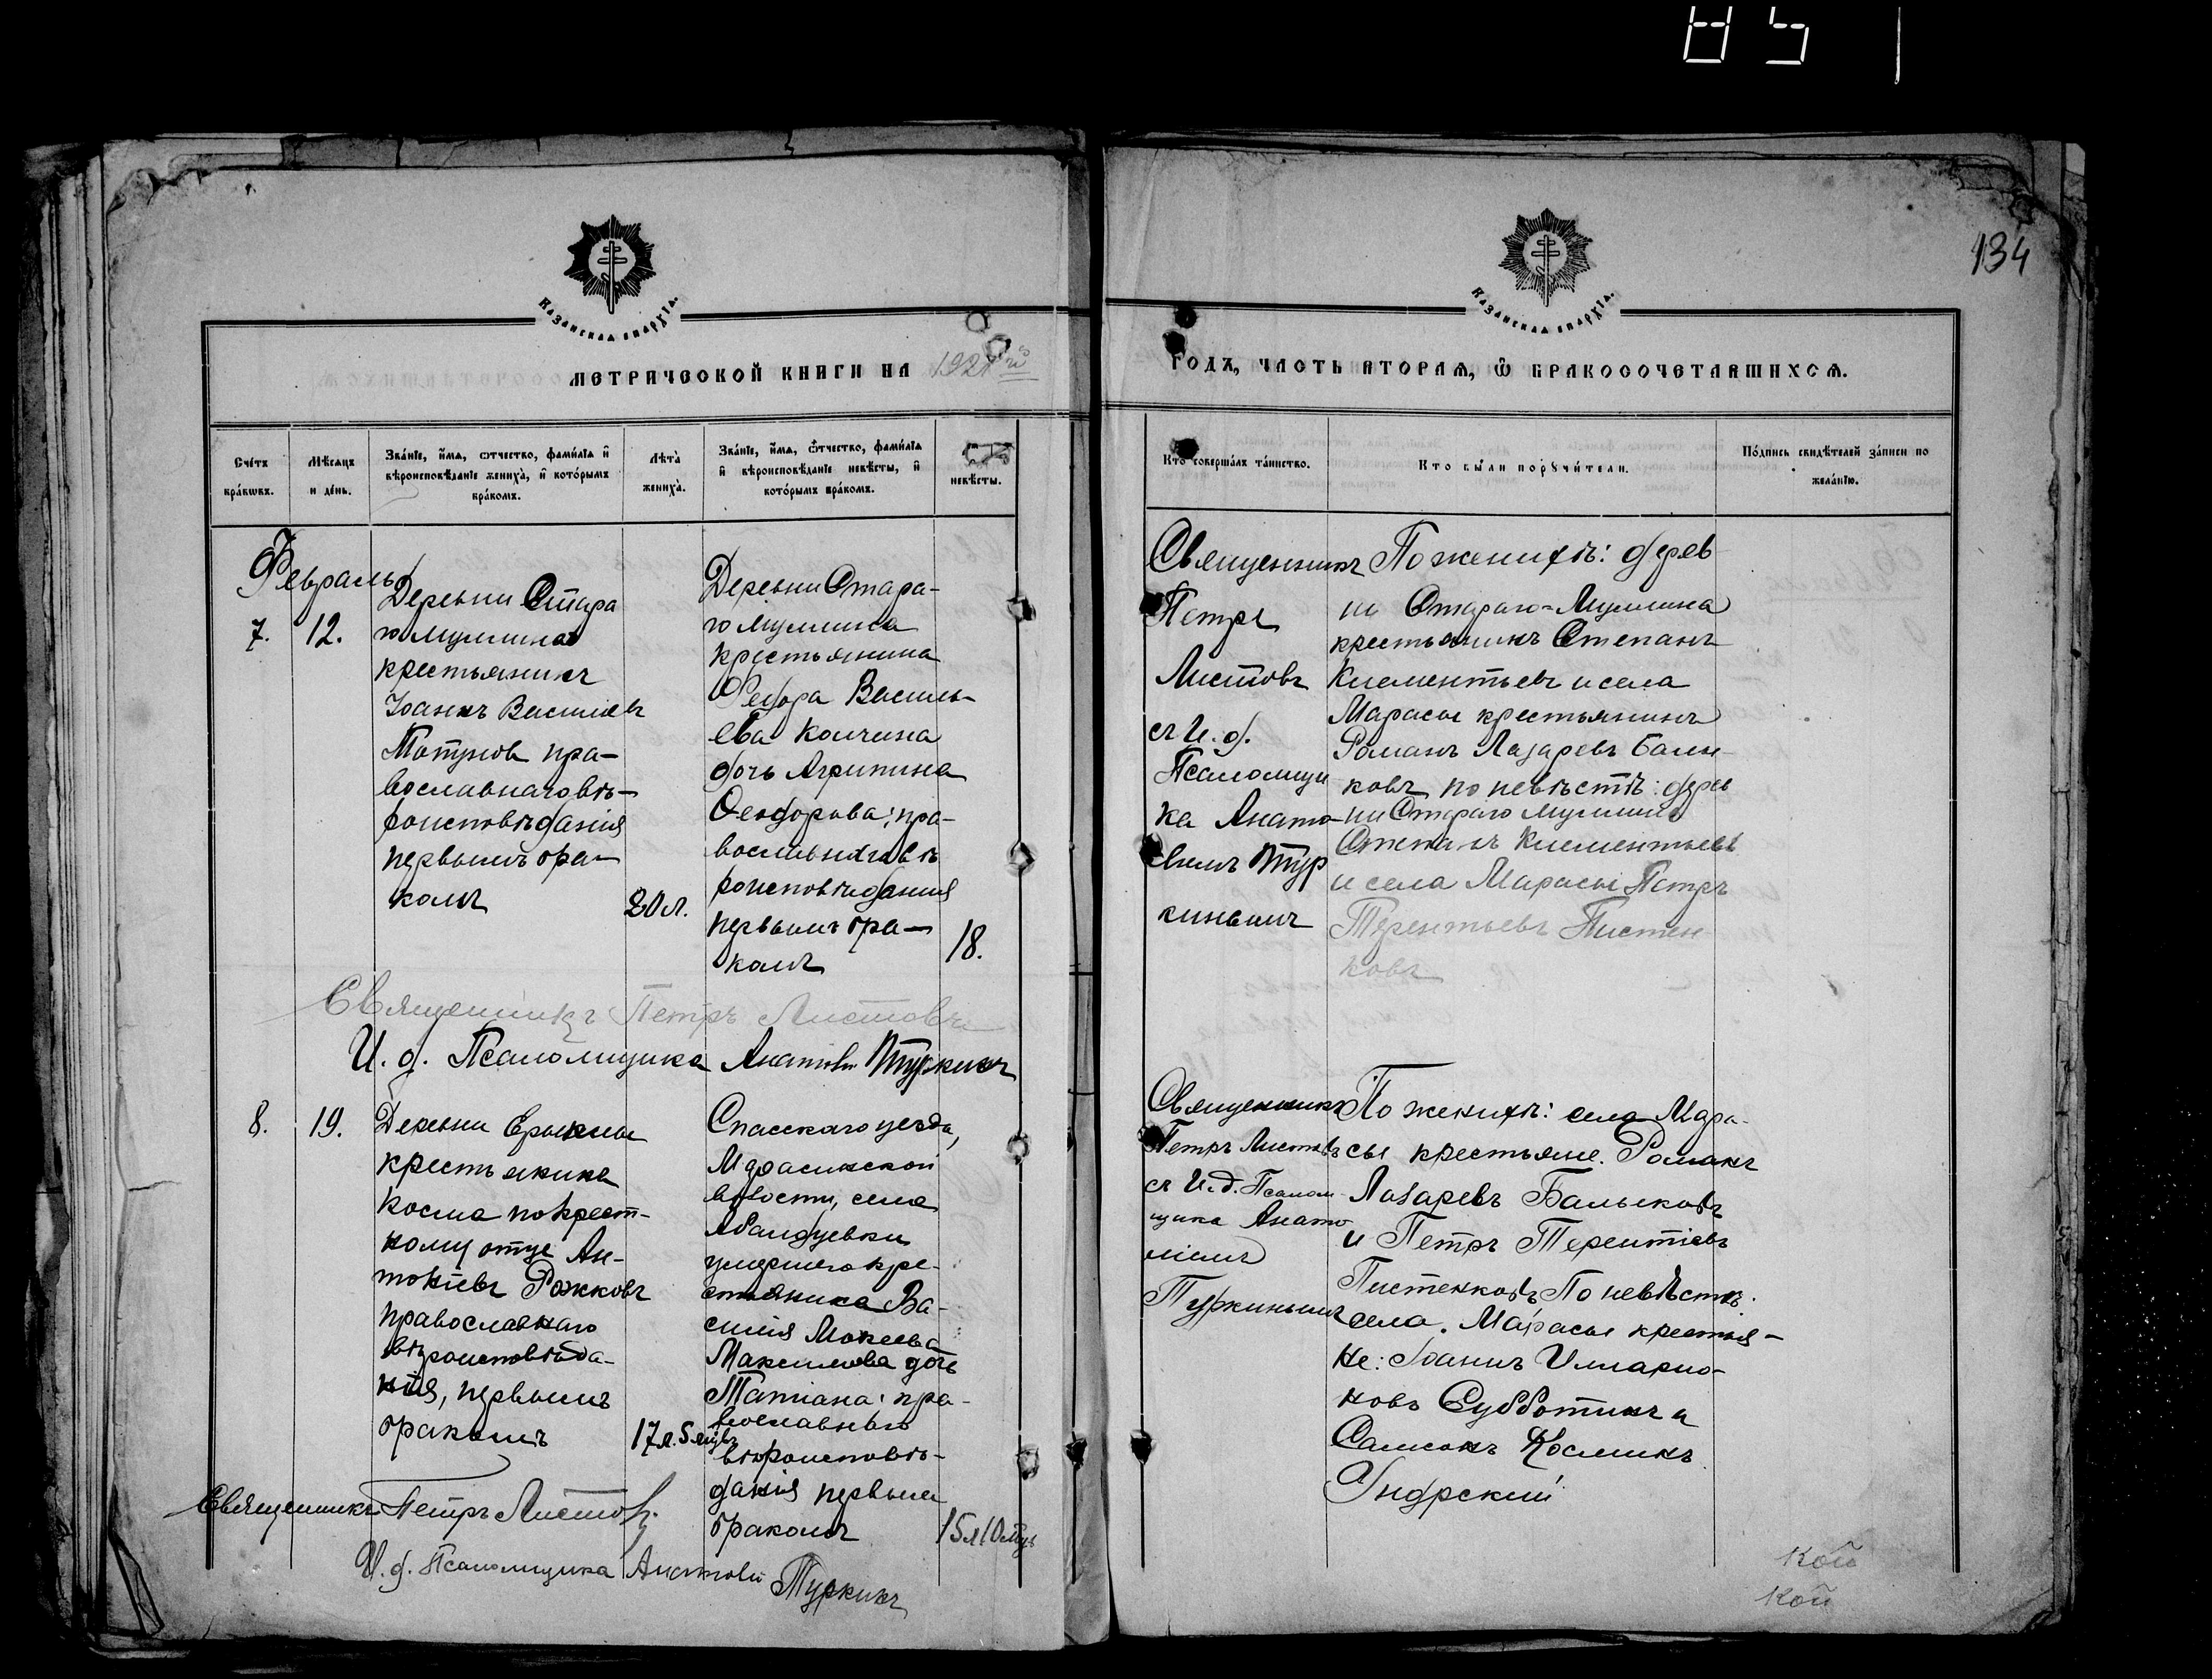 134
Казанская епархїа.
Казанская епархїа.
метрической книги на 1921 й
годъ, часть вторая, ѡ бракосочетавшихся.
Счетъ браковъ.
Мѣсяцъ и день.
Званїе, имя, отчество, фамилїя и вѣроисповѣданїе жениха, и которымъ бракомъ.
Лѣта жениха.
Званїе, имя, отчество, фамилїя и вѣроисповѣданїе невѣсты, и которымъ бракомъ.
невѣсты.
Кто совершалъ таинство.
Кто были поручители.
Подпись свидѣтелей записи по желанїю.
Февраль
7.
12.
Деревни Стара
го Мулмина
крестьянинъ
Іоаннъ Василіевъ
пра-
вославнаго вѣ-
роисповѣданія
первымъ бра-
комъ
20 л.
Деревни Стара-
го Мулмина
крестьянина
Федора Василь-
ева Колчина
дочь Агрипина
Феодорова; пра-
вославнаго вѣ
роисповѣданія
первымъ бра-
комъ
18.
Священникъ
Петръ
Листовъ
съ И. д.
Псаломщи
ка Анато-
ліемъ Тур
кинымъ
По женихѣ: дерев
ни Стараго-Мулмина
крестьянинъ Степанъ
Клементьевъ и села
Марасы крестьянинъ
Романъ Лазаревъ Балы-
ковъ по невѣстѣ: дерев
ни Стараго Мулмина
Степанъ Клементьевъ
и села Марасы Петръ
Терентьевъ Пистен-
ковъ
Священникъ Петръ Листовъ
И. д. Псаломщика Анатолій Туркинъ
8.
19.
Деревни Ерыклы
крестьянина
Косма по крест-
ному отце Ан-
тоніевъ Рожковъ
православнаго
вѣроисповѣда-
нія, первымъ
бракомъ
17 л. 5 мцвъ
Спасскаго уезда,
Марасинской
волости, села
Абалдуевки
умершего кре-
стьянина Ва-
силія Мокеева
Максимова дочь
Татіана: пра-
вославнаго
вѣроисповѣ-
данія первымъ
бракомъ
15 л 10 мцъ
Священникъ
Петръ Листовъ
съ И. д. Псалом
щика Анато
ліемъ
Туркинымъ
По женихѣ: села Мара-
сы крестьяне. Романъ
Лазаревъ Балыковъ
и Петръ Терентіевъ
Пистенковъ По невѣстѣ:
села. Марасы крестья-
не: Іоаннъ Илларіо-
новъ Субботинъ и
Самсонъ Косминъ
Ундрскій
Священникъ Петръ Листовъ
И. д. Псаломщика Анатолій
Туркинъ